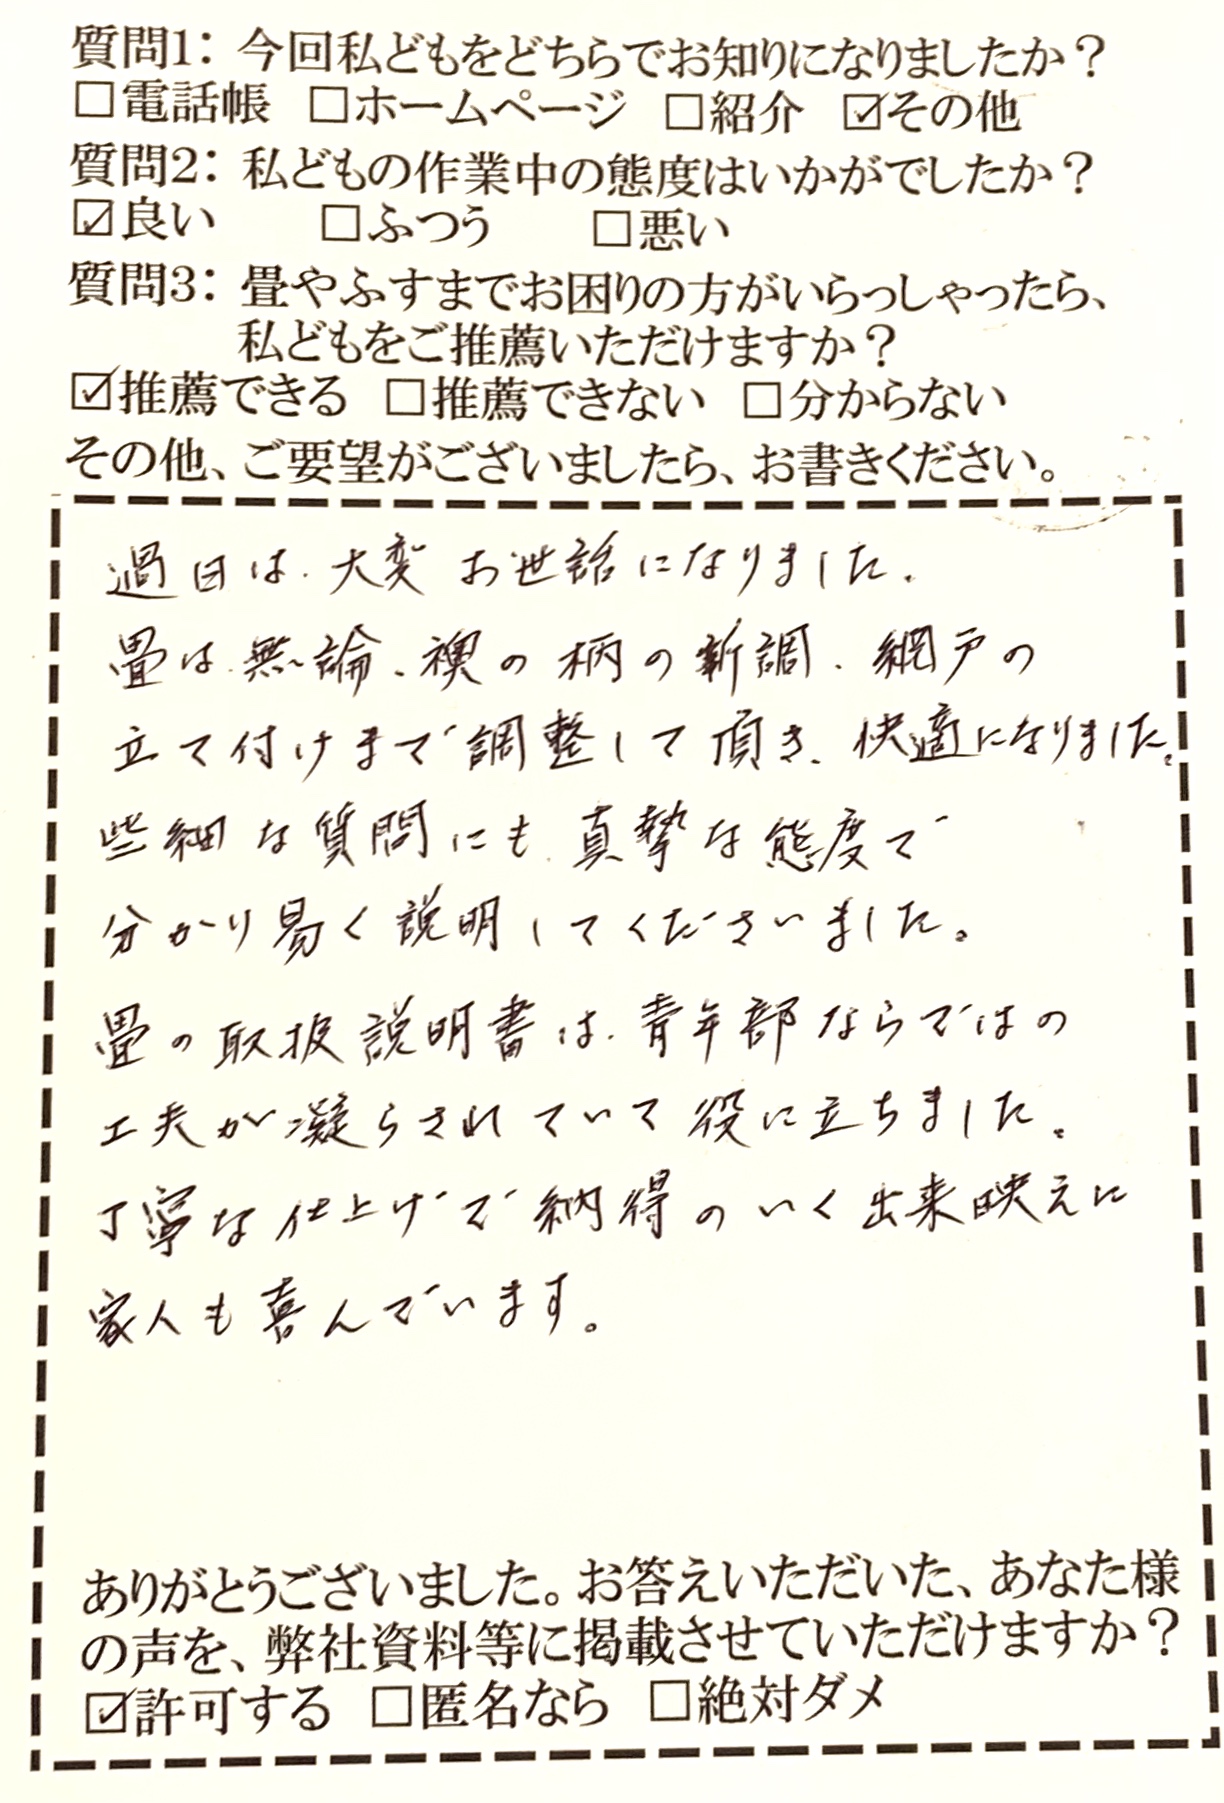 質問1: 今回私どもをどちらでお知りになりましたか？
☐電話帳 ☐ホームページ ☐紹介 ☑その他
質問2: 私どもの作業中の態度はいかがでしたか？
☑良い ☐ふつう ☐悪い
質問3: 畳やふすまでお困りの方がいらっしゃったら、
私どもをご推薦いただけますか？
☑推薦できる ☐推薦できない ☐分からない
その他、ご要望がございましたら、お書きください。
過日は、大変お世話になりました。
畳は無論、襖の柄の新調、網戸の
立て付けまで調整して頂き、快適になりました。
些細な質問にも真摯な態度で
分かり易く説明してくださいました。
畳の取扱説明書は、青年部ならではの
工夫が凝らされていて役に立ちました。
丁寧な仕上げで納得のいく出来映えに
家人も喜んでいます。
ありがとうございました。お答えいただいた、あなた様
の声を、弊社資料等に掲載させていただけますか？
☑許可する ☐匿名なら ☐絶対ダメ